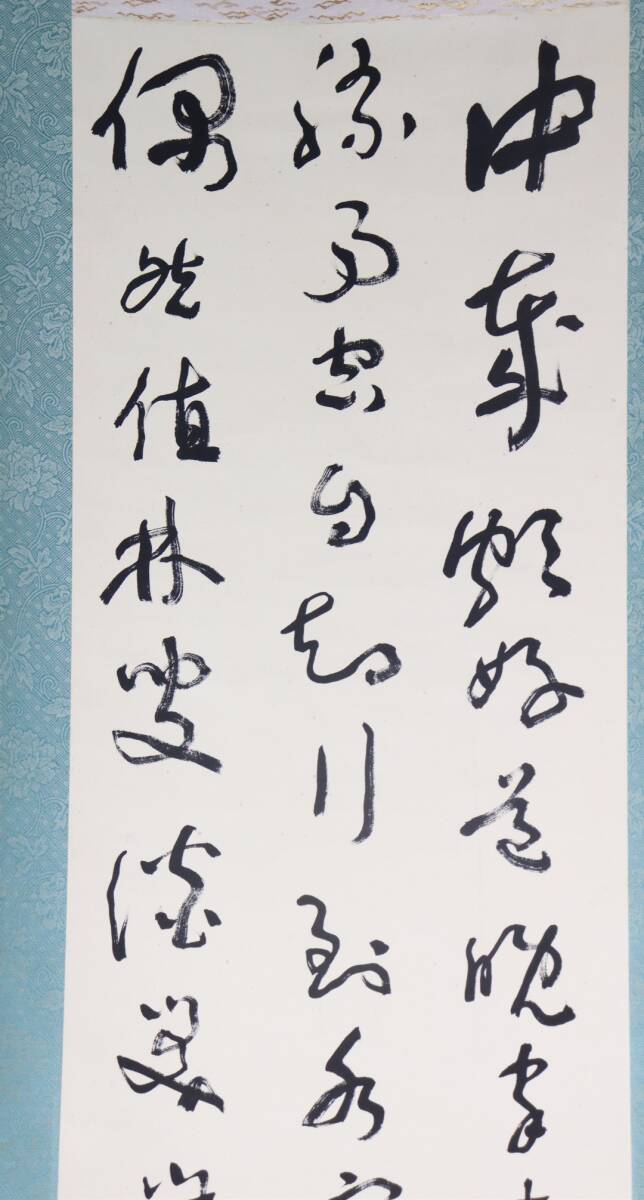 中歲頗好道晚家
勝事空自知行到水
偶然值林叟談笑